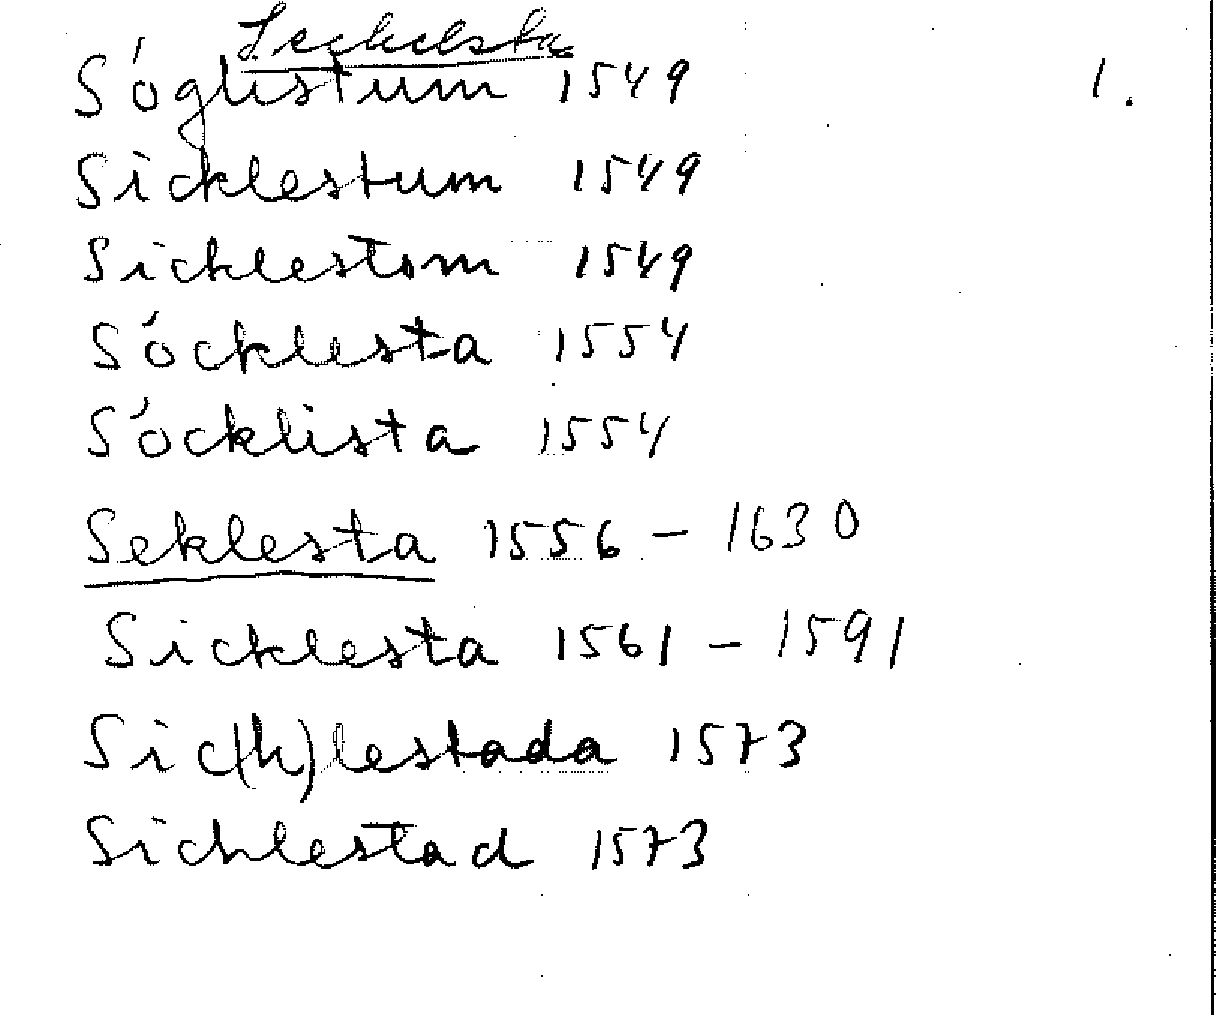 Seckelsta
Sóglistum 1549 1.
Sicklestum 1549
Sicklestom 1549
Sócklesta 1554
Sócklista 1554
Seklesta 1556 - 1630
Sicklesta 1561 - 1591
Sic(k)lestada 1573
Sicklestad 1573